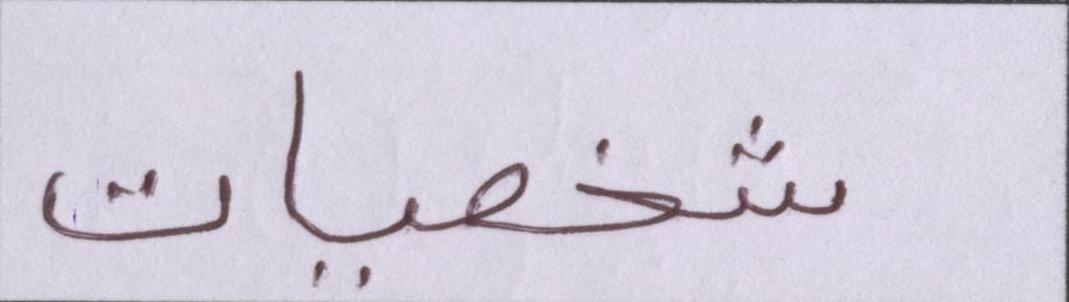 شخصيات